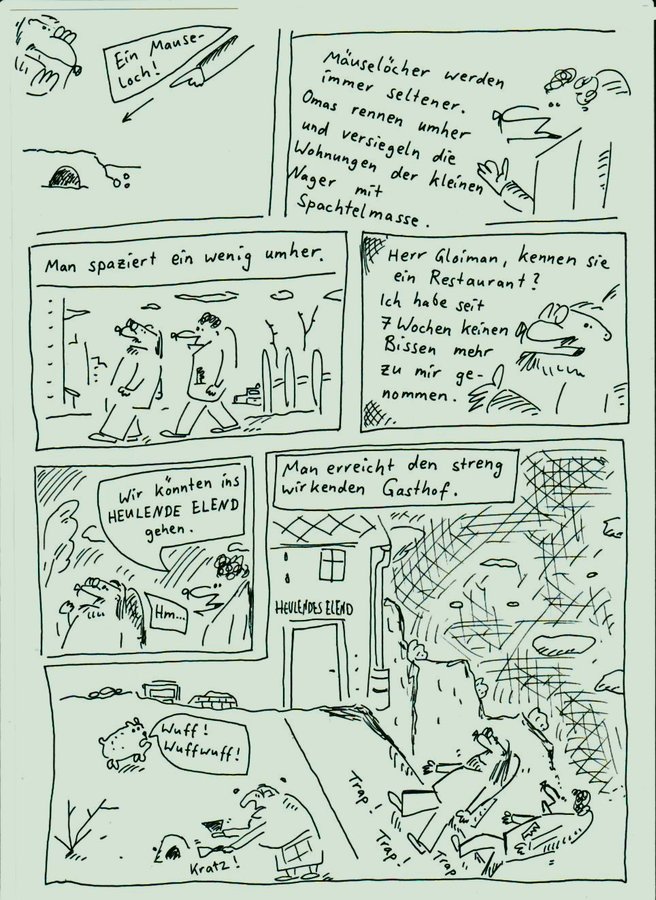 Ein Mause-
Loch!
Mäuselöcher werden
immer seltener.
Omas rennen umher
und versiegeln die
Wohnungen der kleinen
Nager mit
Spachtelmasse.
Man spaziert ein wenig umher.
Herr Gloiman, kennen sie
ein Restaurant?
Ich habe seit
7 Wochen keinen
Bissen mehr
zu mir ge-
nommen.
Wir könnten ins
HEULENDE ELEND
gehen.
Hm...
Man erreicht den streng
wirkenden Gasthof.
HEULENDES ELEND
Wuff!
Wuffwuff!
Kratz!
Trap!
Trap!
Trap